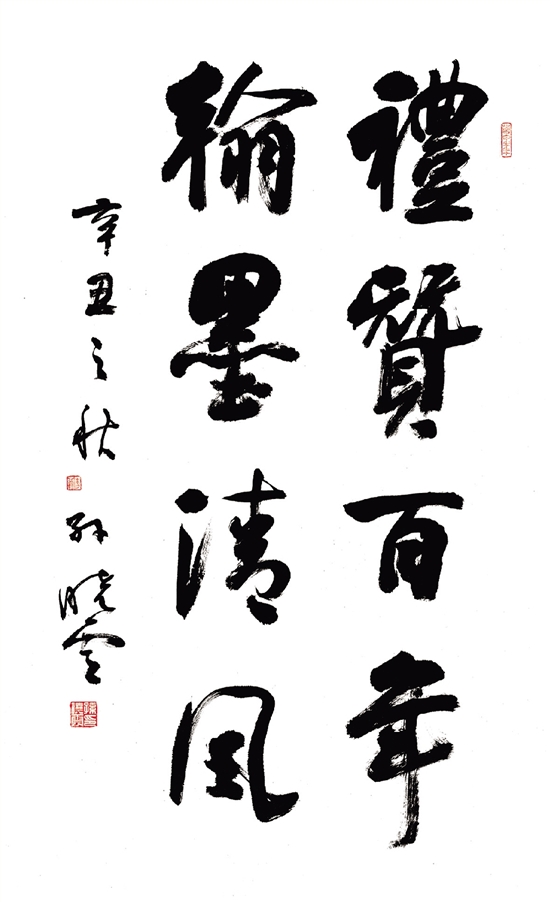 禮贊百年
翰墨清風
辛丑之秋 孫曉雲